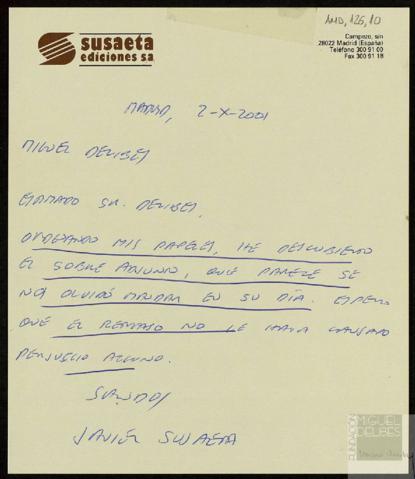 AMD, 126, 10
susaeta
ediciones s.a.
Campezo, s/n
28022 Madrid (España)
Teléfono 300 91 00
Fax 300 91 18
MADRID, 2-X-2001
MIGUEL DELIBES
ESTIMADO SR. DELIBES,
ORDENANDO MIS PAPELES, HE DESCUBIERTO
EL SOBRE ADJUNTO, QUE PARECE SE
NOS OLVIDÓ MANDAR EN SU DÍA. ESPERO
QUE EL RETRASO NO LE HAYA CAUSADO
PERJUICIO ALGUNO.
SALUDOS
JAVIER SUSAETA
FUNDACIÓN
MIGUEL
DELIBES